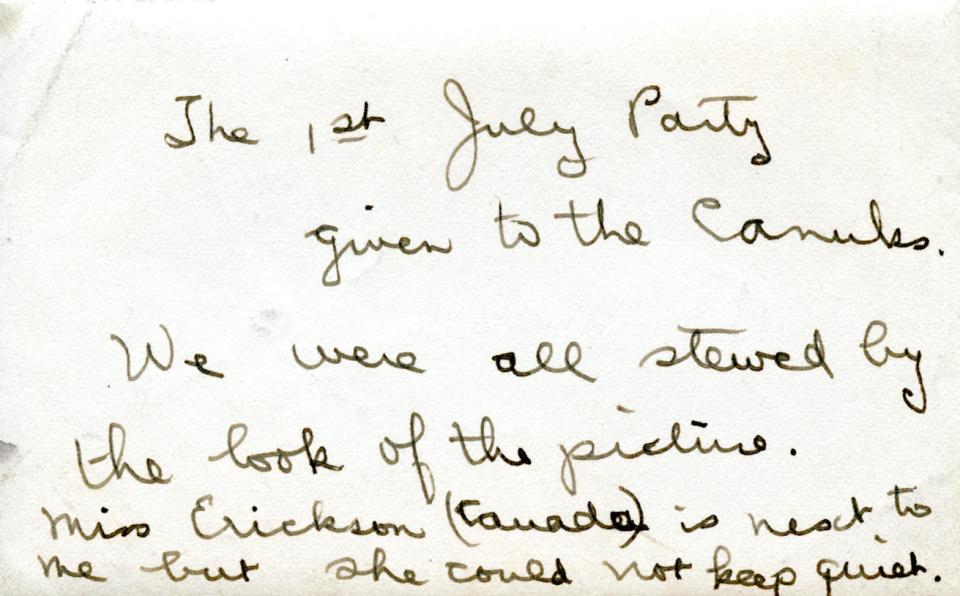 The 1st July Party
given to the Canuks.
We were all stewed by
the look of the picture.
Miss Erickson (Canada) is next to
me but she could not keep quiet.